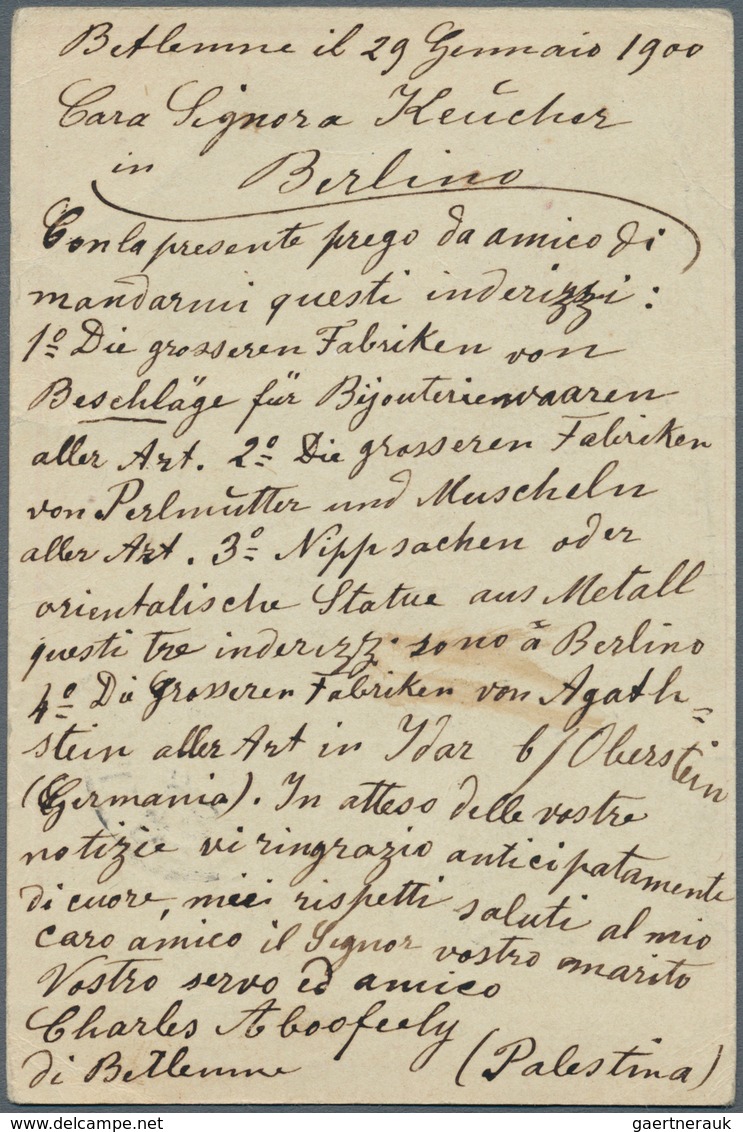 Betlemme il 29 Gennaio 1900
Cara Signora Keücher
in Berlino
Con la presente prego da amico di
mandarmi questi inderizzi:
1º Die grosseren Fabriken von
Beschläge für Bijouteriewaaren
aller Art. 2º Die grosseren Fabriken
von Perlmütter und Muscheln
aller Art. 3º Nippsachen oder
orientalische Statue aus Metall
questi tre inderizzi sono à Berlino
4º Die Grosseren Fabriken von Agath=
stein aller Art in Idar b/Oberstein
(Germania). In atteso delle vostre
notizie vi ringrazio anticipatamente
di cuore, miei rispetti saluti al mio
caro amico il Signor vostro marito
Vostro servo ed amico
Charles Aboofeely
di Betlemme (Palestina)
gaertnerauk